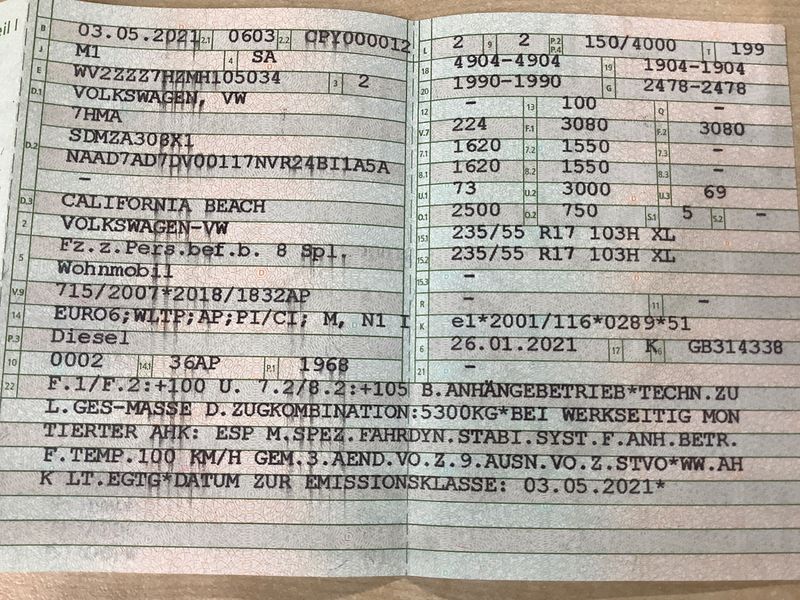 eil I
B 03.05.2021 2.1 0603 2.2 CPY000012
J M1 4 SA
E WV2ZZZ7HZMH105034 3 2
D.1 VOLKSWAGEN, VW
7HMA
D.2 SDMZA308X1
NAAD7AD7DV00117NVR24BI1A5A
–
D.3 CALIFORNIA BEACH
2 VOLKSWAGEN-VW
5 Fz.z.Pers.bef.b. 8 Spl.
Wohnmobil
V.9 715/2007*2018/1832AP
14 EURO6;WLTP;AP;PI/CI; M, N1 I
P.3 Diesel
10 0002 14.1 36AP P.1 1968
L 2 9 2 P.2 P.4 150/4000 T 199
18 4904-4904 19 1904-1904
20 1990-1990 G 2478-2478
12 – 13 100 Q –
V.7 224 F.1 3080 F.2 3080
7.1 1620 7.2 1550 7.3 –
8.1 1620 8.2 1550 8.3 –
U.1 73 U.2 3000 U.3 69
O.1 2500 O.2 750 S.1 5 S.2 –
15.1 235/55 R17 103H XL
15.2 235/55 R17 103H XL
15.3 –
R – 11 –
K e1*2001/116*0289*51
6 26.01.2021 17 K 16 GB314338
21 –
22 F.1/F.2:+100 U. 7.2/8.2:+105 B.ANHÄNGEBETRIEB*TECHN.ZU
L.GES-MASSE D.ZUGKOMBINATION:5300KG*BEI WERKSEITIG MON
TIERTER AHK: ESP M.SPEZ.FAHRDYN.STABI.SYST.F.ANH.BETR.
F.TEMP.100 KM/H GEM.3.AEND.VO.Z.9.AUSN.VO.Z.STVO*WW.AH
K LT.EGTG*DATUM ZUR EMISSIONSKLASSE: 03.05.2021*